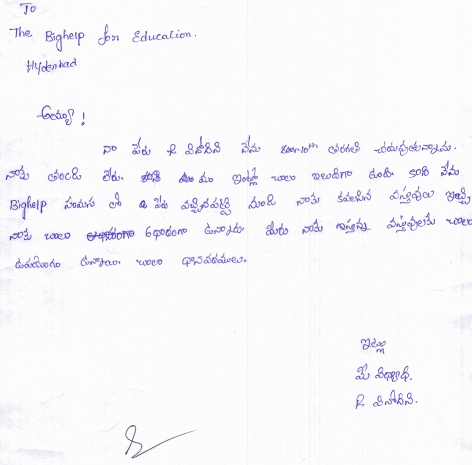 To
The Bighelp for Education.
Hyderabad
అయ్యా!
నా పేరు R వినోదిని నేను 10th తరగతి చదువుతున్నాను.
నాకు తండ్రి లేరు. మా ఇంట్లో చాలా ఇబ్బందిగా ఉంది. కాని నేను
Bighelp సంస్థ లో పేరు వచ్చినప్పటి నుండి నాకు కావలసిన వస్తువులు ఇచ్చి
నాకు చాలా ఉన్నారు. మీరు నాకు ఇస్తున్న వస్తువులకు చాలా
ఉపయోగం ఉన్నాయి. చాలా ధన్యవాదములు.
ఇట్లు
మీ విధ్యార్థి.
R వినోదిని.